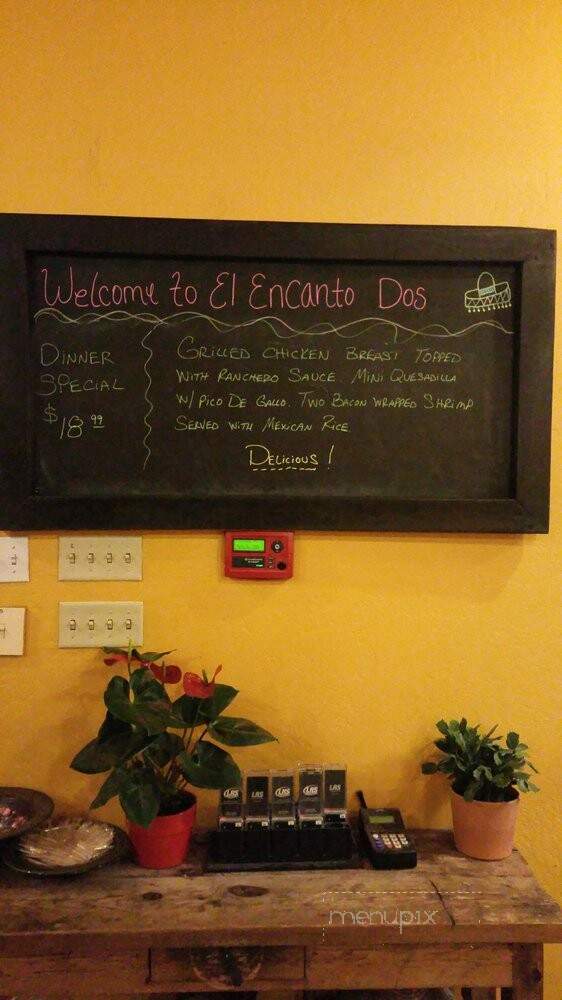 Welcome to El Encanto Dos
DINNER
SPECIAL
$18.99
GRILLED CHICKEN BREAST TOPPED
WITH RANCHERO SAUCE. MINI QUESADILLA
W/ PICO DE GALLO. TWO BACON WRAPPED SHRIMP
SERVED WITH MEXICAN RICE
DELICIOUS!
LRS LRS LRS LRS LRS
menupix